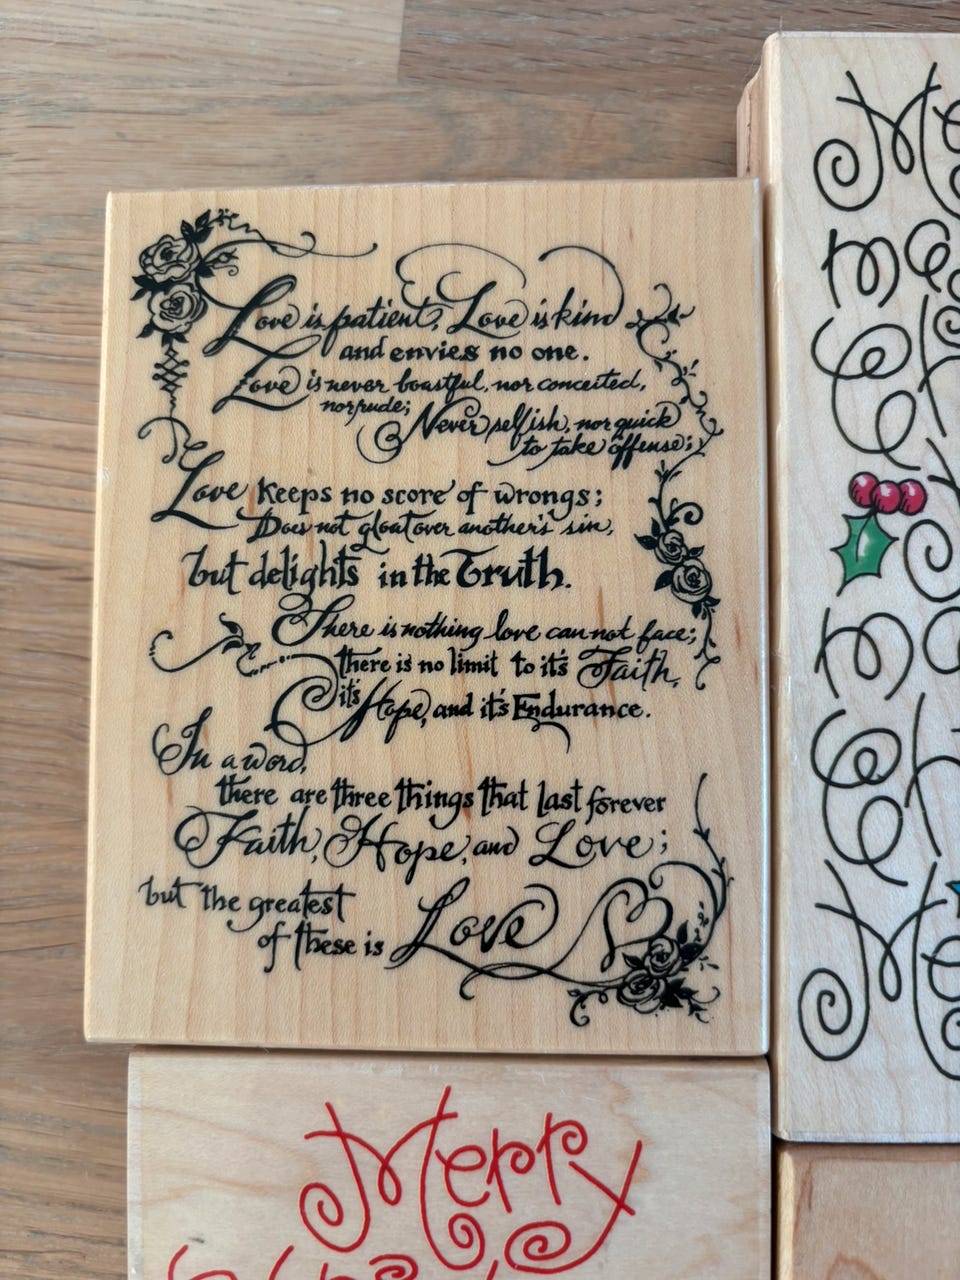 Love is patient, Love is kind
and envies no one.
Love is never boastful, nor conceited,
nor rude;
Never selfish, nor quick
to take offense;
Love keeps no score of wrongs;
Does not gloat over another's sin,
but delights in the Truth.
There is nothing love can not face;
there is no limit to it's Faith,
it's Hope, and it's Endurance.
In a word,
there are three things that last forever
Faith, Hope, and Love;
but the greatest
of these is Love
Merry